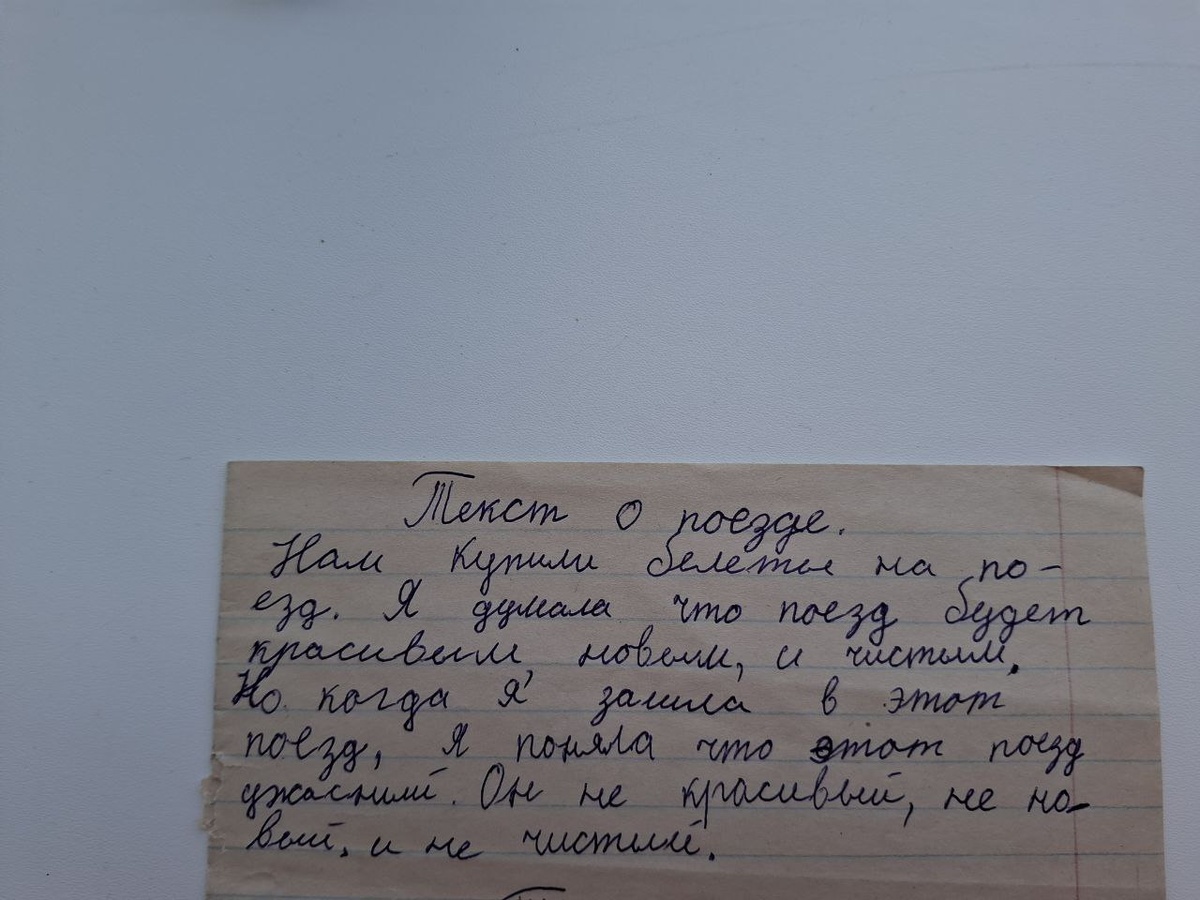 Текст о поезде.
Нам купили белеты на по-
езд. Я думала что поезд будет
красивым, новым, и чистым.
Но когда я зашла в этот
поезд, я поняла что этот поезд
ужасный. Он не красивый, не но-
вый, и не чистый.